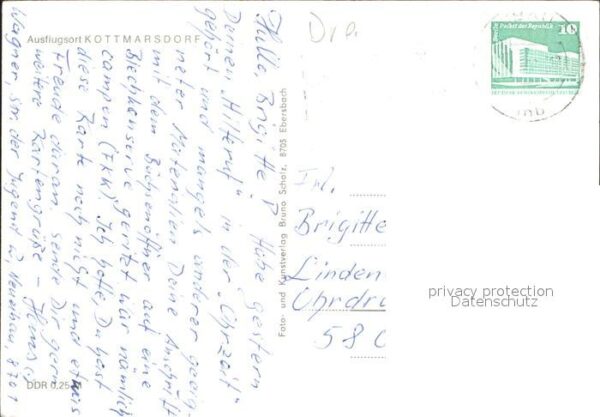 Ausflugsort KOTTMARSDORF
Hallo, Brigitte P. Habe gestern
Deinen „Hilferuf" in der „Uhrzeit"
gehört und mangels anderer geeig-
neter Materialien Deine Anschrift
mit dem Büchsenöffner auf eine
Blechkonserve geritzt. War nämlich
campen (FKK). Ich hoffe, Du hast
diese Karte noch nicht und etwas
Freude daran, sende Dir gern
weitere Kartengrüße –
Wagner, Str. der Jugend 2, 8701
DDR 0,25
Foto- und Kunstverlag Bruno Scholz, 8705 Ebersbach
Palast der Republik
10
Frl.
Brigitte
Linden
Ohrdru
580
privacy protection
Datenschutz